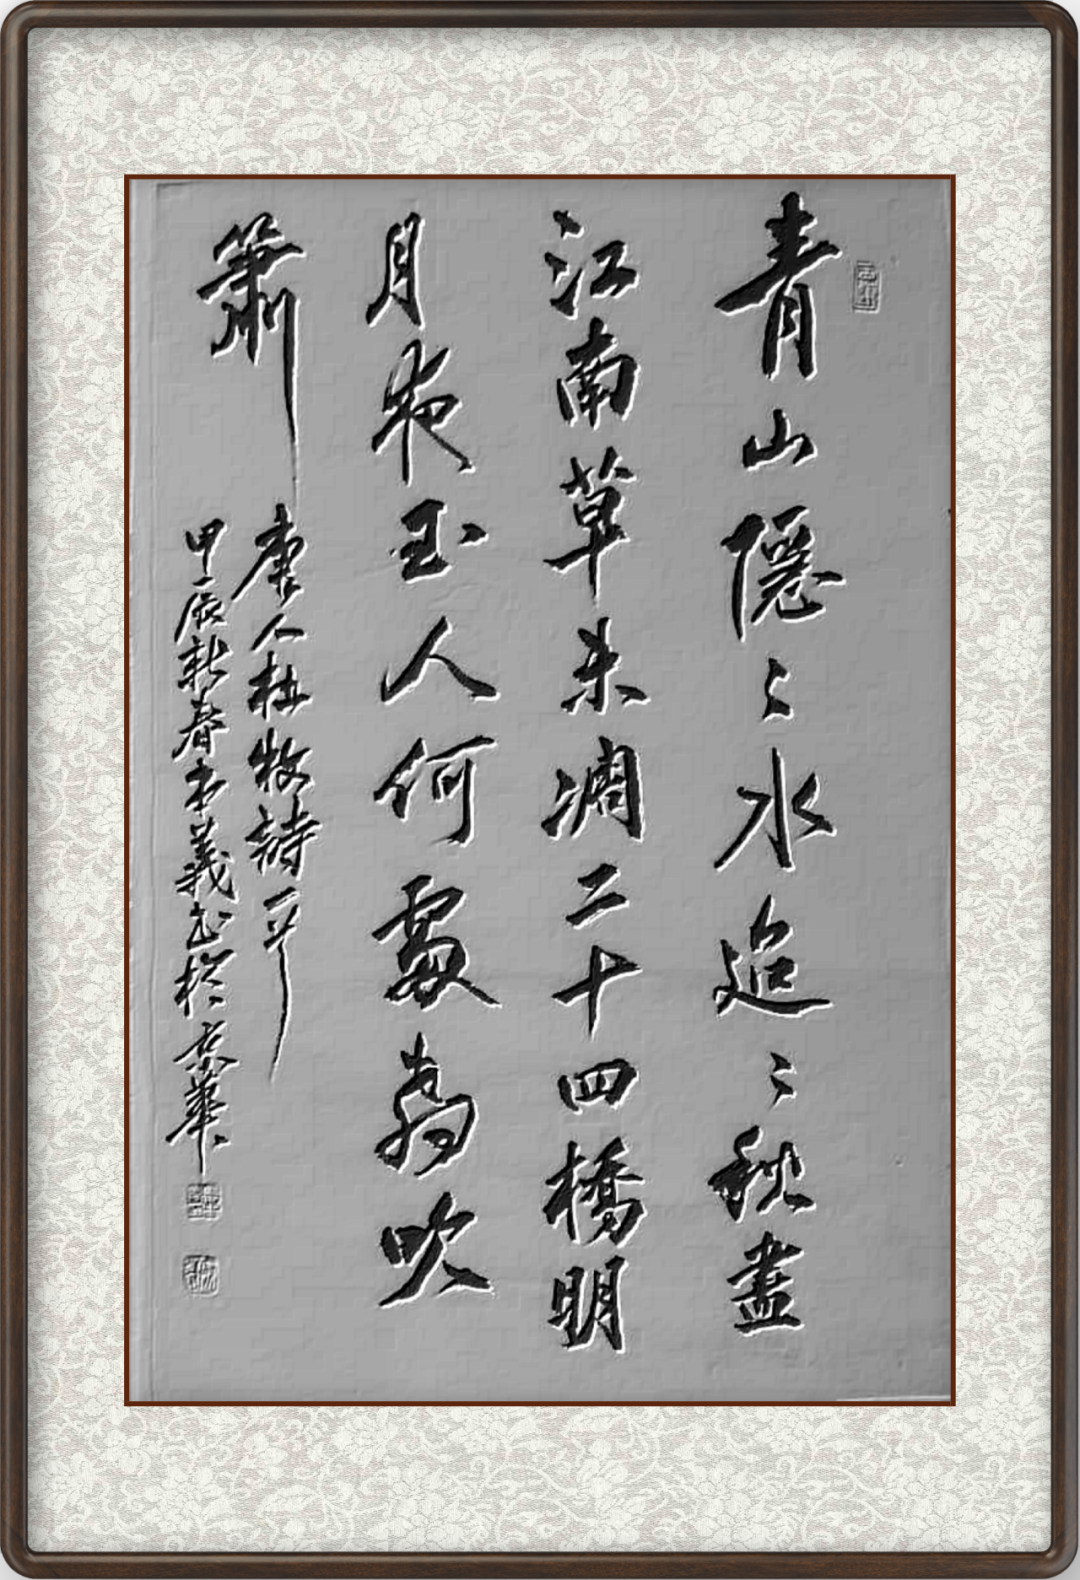 青山隱〻水迢〻秋盡
江南草未凋二十四橋明
月夜玉人何處教吹
簫
唐人杜牧詩一首
甲辰新春本義書於京華